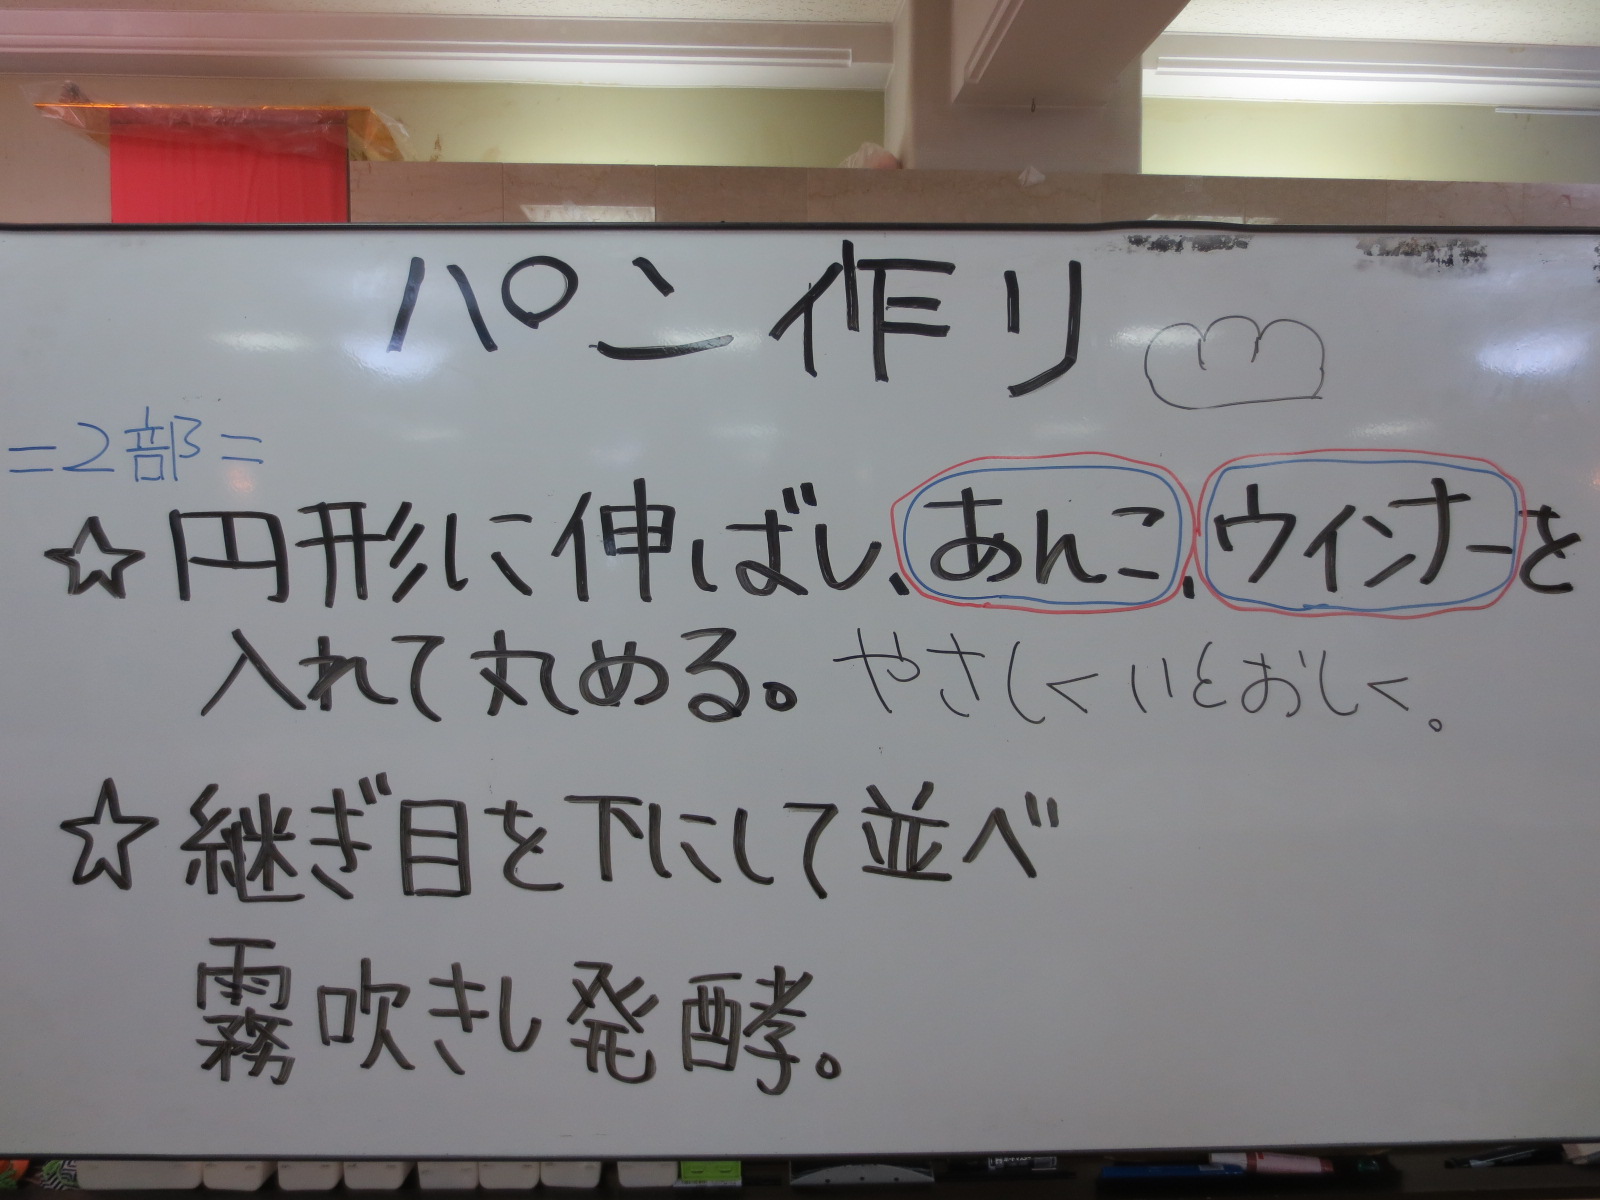 パン作り
=2部=
☆円形に伸ばし、あんこ、ウインナーを
入れて丸める。やさしくいとおしく。
☆継ぎ目を下にして並べ
霧吹きし発酵。